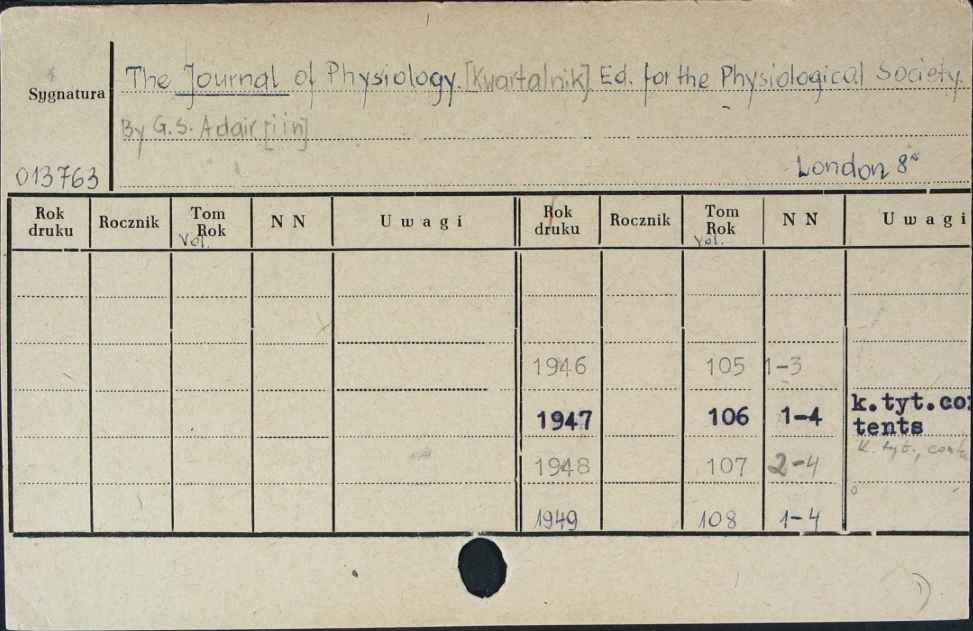 The Journal of Physiology. [Kwartalnik]. Ed. for the Physiological Society.
Sygnatura
By G.S. Adair [i in]
013763
London 8°
Rok druku Rocznik Tom Rok Vol. N N Uwagi Rok druku Rocznik Tom Rok Vol. N N Uwagi
1946 105 1-3
1947 106 1-4 k.tyt.con
tents
1948 107 2-4 k. tyt., conte
1949 108 1-4
1)